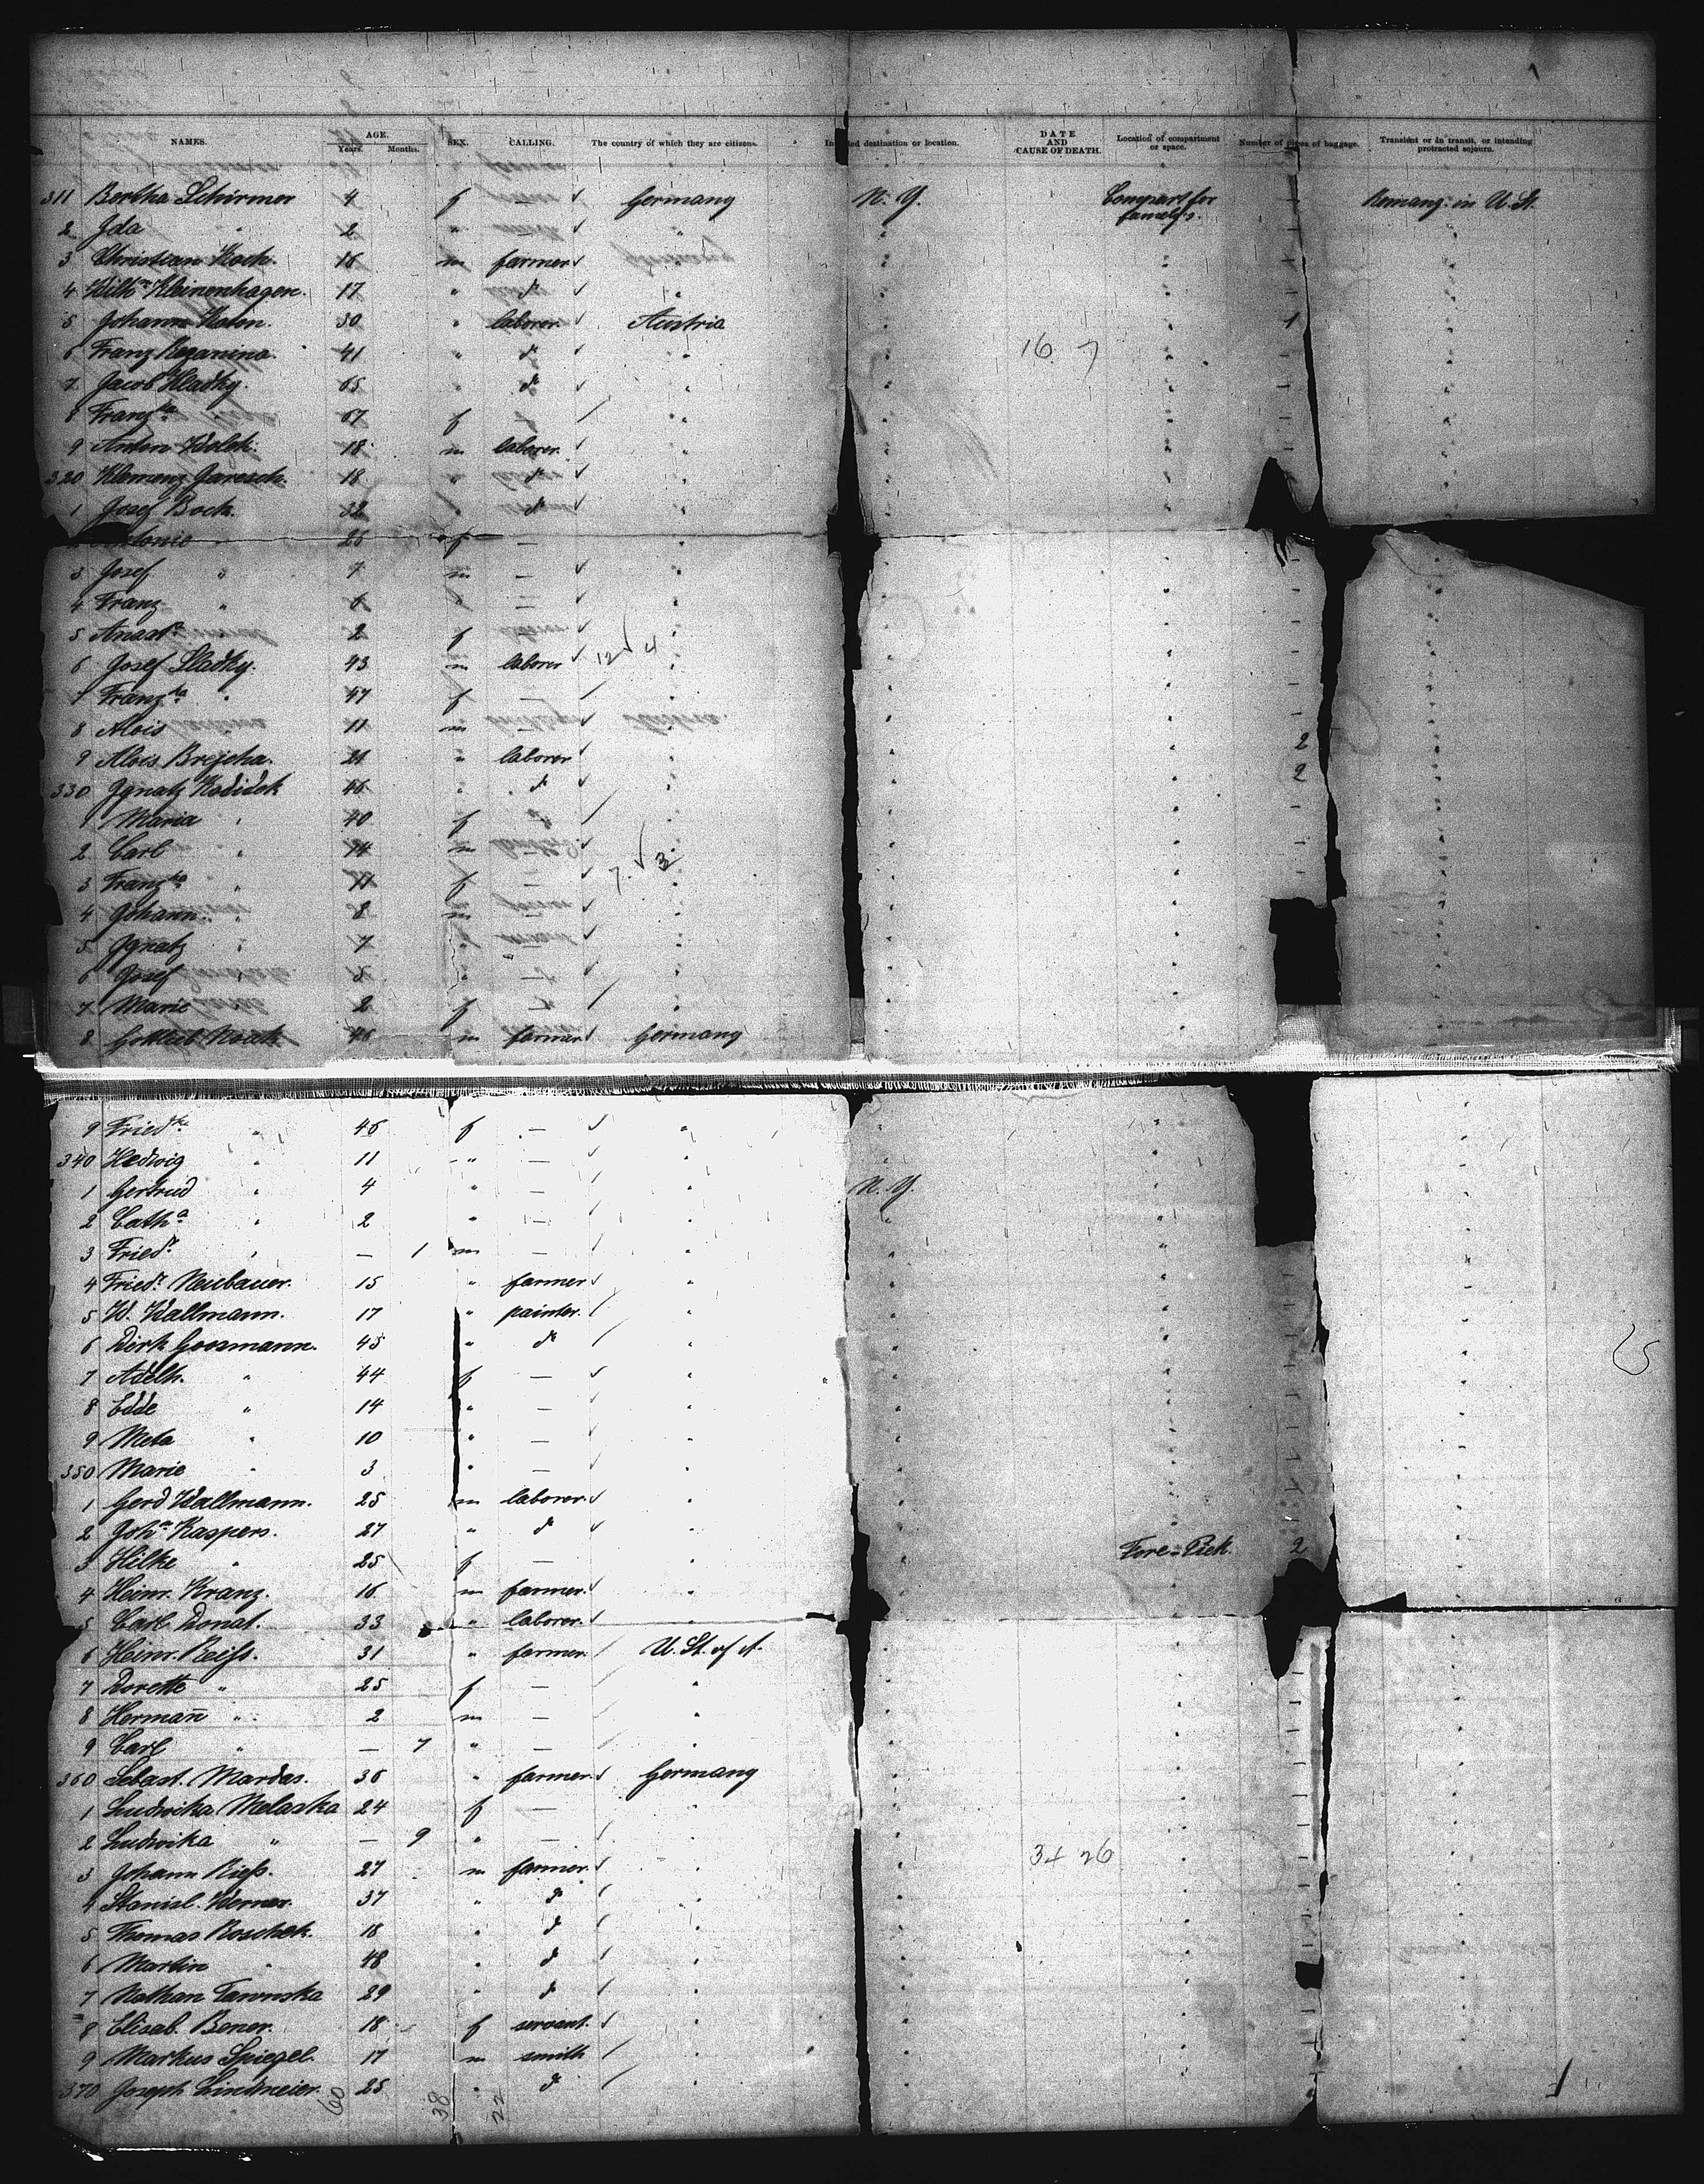 NAMES. AGE. Years. Months. SEX. CALLING. The country of which they are citizens. destination or location. DATE AND CAUSE OF DEATH. Location of compartment or space. Number of pieces of baggage. Transient or in transit, or intending protracted sojourn.
311 Bertha Schirmer 4 f — Germany N. Y. Compart for Remang. in U. St.
2 Ida " 2 " — "
3 Christian Koch. 16 m farmer
4 Wilhm Kleinenhagen. 17 " do "
5 Johann 30 " laborer Austria 1
6 Franz 41 " do " 16 7
7 Jacob Hladky. 65 " do "
8 Franzka " 67 f "
9 Anton 18 m laborer. "
320 Klemenz Jaresch. 18 " do "
1 Josef Bock. 32 " do "
26 f — "
3 Josef " 7 m — "
4 Franz " 6 " — "
5 2 f — "
6 Josef Sladky. 43 m laborer 12 4 "
7 Franzka " 47 f — "
8 Alois 11 m
9 Alois Brejcha. 21 " laborer " 2
330 Ignatz 46 " do " 2
1 Maria " 40 f — "
2 Carl " 14 m "
3 Franzka " 11 f — 7 3 "
4 Johann " 8 m — "
5 Ignatz " 7 " — "
6 Josef " " — "
7 Marie 2 f — "
8 Gottlieb Noack 46 m farmer Germany
9 Friedke " 46 f — "
340 Hedwig " 11 " — "
1 Gertrud " 4 " — " N. Y.
2 Catha " 2 " — "
3 Friedr. " — 1 m — "
4 Friedr. Neubauer. 15 " farmer "
5 W. Wallmann. 17 " painter. "
6 Dirk Goosmann. 45 " do "
7 Adelh. " 44 f — "
8 Edde " 14 " — "
9 Meta " 10 " — "
350 Marie " 3 " — "
1 Gerd Wallmann. 25 m laborer. "
2 Johnn Kaspers. 27 " do "
3 Hilke " 25 f — Fore-Piek. 2
4 Heinr. Kranz. 16 m farmer. "
5 Carl Donat. 33 " laborer. "
6 Heinr. Reiss. 31 " farmer. U. St. of A.
7 Dorette " 25 f — "
8 Hermann " 2 m — "
9 Carl " — 7 " — "
360 Sebast. Mardas. 36 " farmer. Germany
1 Ludwika Melaska 24 f — "
2 Ludwika " — 9 " — "
3 Johann Riess. 27 m farmer. " 34 26
4 Stanisl. Werner. 37 " do "
5 Thomas Roschek. 18 " do "
6 Martin " 48 " do "
7 Nathan 29 " do "
8 Elisab. Bener. 18 f servant. "
9 Markus Spiegel. 17 m smith "
370 Joseph Lindmeier. 25 " do "
60 38 22